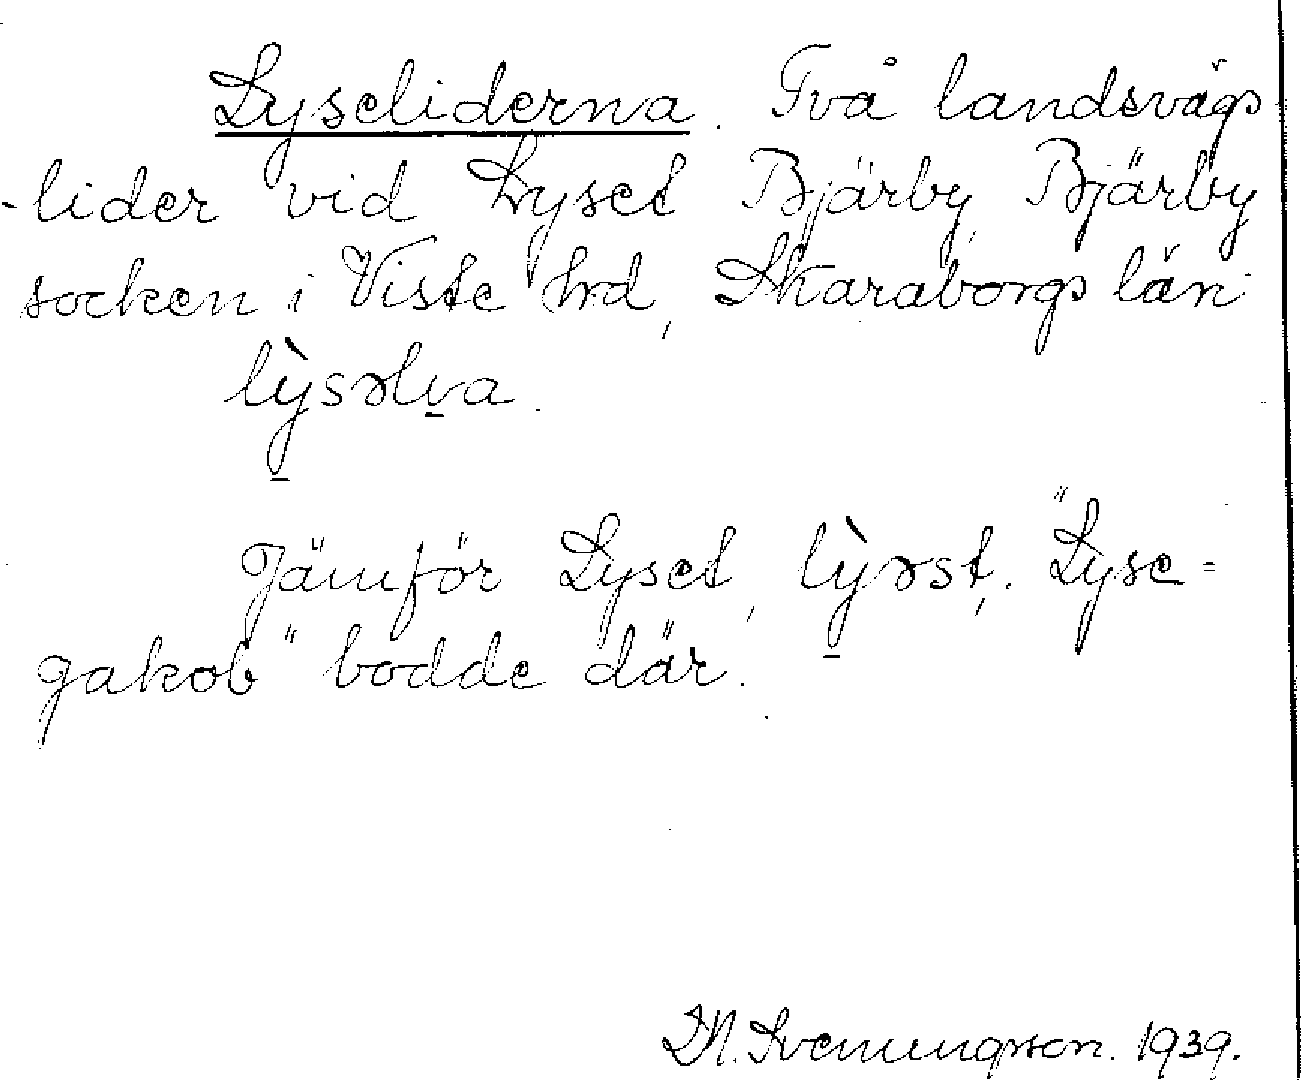 Lyseliderna. Två landsvägs
-lider vid Lyset Bjärby, Bjärby
socken i Viste hrd, Skaraborgs län
lỳsəlva.
Jämför Lyset, lỳəsţ. "Lyse=
gakob" bodde där.
Svenungsson. 1939.